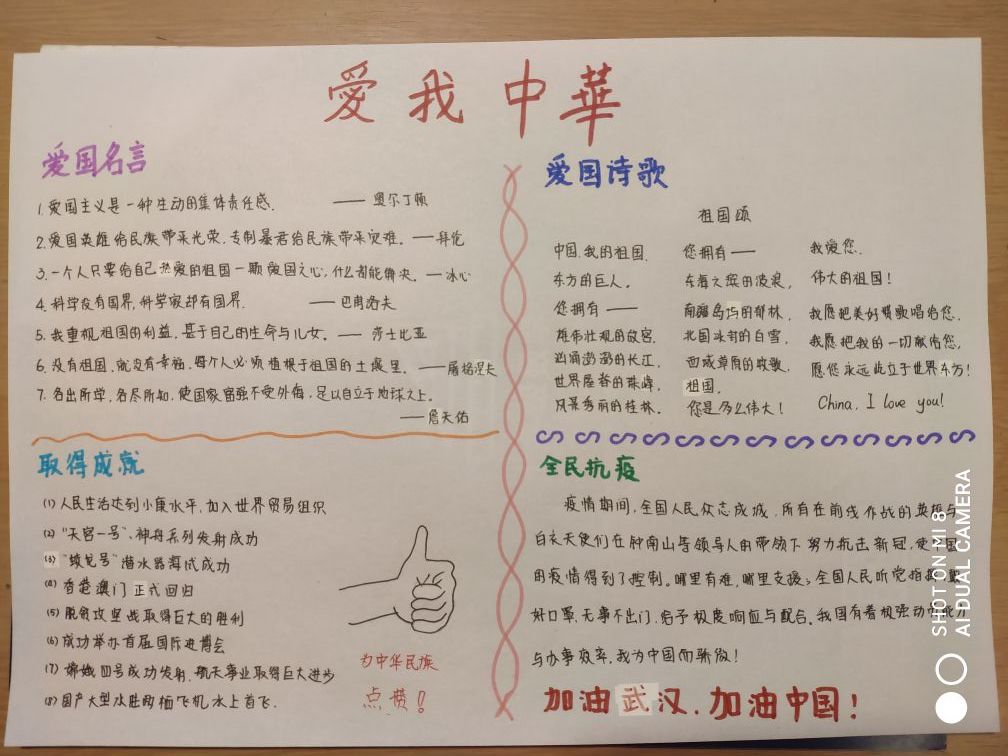 愛我中華
爱国名言
1.爱国主义是一种生动的集体责任感. —— 奥尔丁顿
2.爱国英雄给民族带来光荣,专制暴君给民族带来灾难。—拜伦
3.一个人只要给自己热爱的祖国一颗爱国之心,什么都能解决。—冰心
4.科学没有国界,科学家却有国界. ——巴甫洛夫
5.我重视祖国的利益,甚于自己的生命与儿女。——莎士比亚
6.没有祖国,就没有幸福。每个人必须植根于祖国的土壤里。——屠格涅夫
7.各出所学,各尽所知,使国家富强不受外侮,足以自立于地球之上。
——詹天佑
爱国诗歌
祖国颂
中国,我的祖国.
东方的巨人。
您拥有——
雄伟壮观的故宫,
汹涌澎湃的长江,
世界屋脊的珠峰,
风景秀丽的桂林。
您拥有——
东海之滨的波浪,
南疆岛屿的郁林,
北国冰封的白雪,
西域草原的牧歌,
祖国.
您是多么伟大!
我爱您.
伟大的祖国!
我愿把美好赞歌唱给您,
我愿把我的一切献给您,
愿您永远屹立于世界东方!
China, I love you!
取得成就
(1)人民生活达到小康水平,加入世界贸易组织
(2)"天宫一号"、神舟系列发射成功
(3)"蛟龙号"潜水器海试成功
(4)香港澳门正式回归
(5)脱贫攻坚战取得巨大的胜利
(6)成功举办首届国际进博会
(7)嫦娥四号成功发射,航天事业取得巨大进步
(8)国产大型水陆两栖飞机水上首飞.
为中华民族
点赞!
全民抗疫
疫情期间,全国人民众志成城,所有在前线作战的英雄与
白衣天使们在钟南山等领导人的带领下努力抗击新冠,使中国
的疫情得到了控制。哪里有难,哪里支援;全国人民听党指挥,
好口罩,无事不出门,给予极度响应与配合。我国有着极强动
与办事效率,我为中国而骄傲!
加油武汉,加油中国!
SHOT ON MI 8
AI DUAL CAMERA